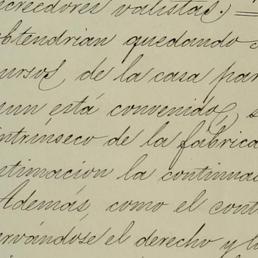 creedores valistas.)
obtendrian quedando
ursos, de la casa par
un está convenido, s
ntrinseco de la fabrica
stimacion la continua
Además, como el cont
ervándose el derecho y l